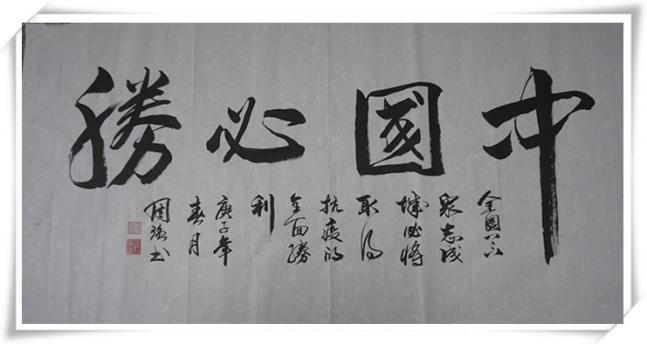 中國必勝
全國上下
衆志成
城必將
取得
抗疫的
全面勝
利
庚子年
春月
周 书